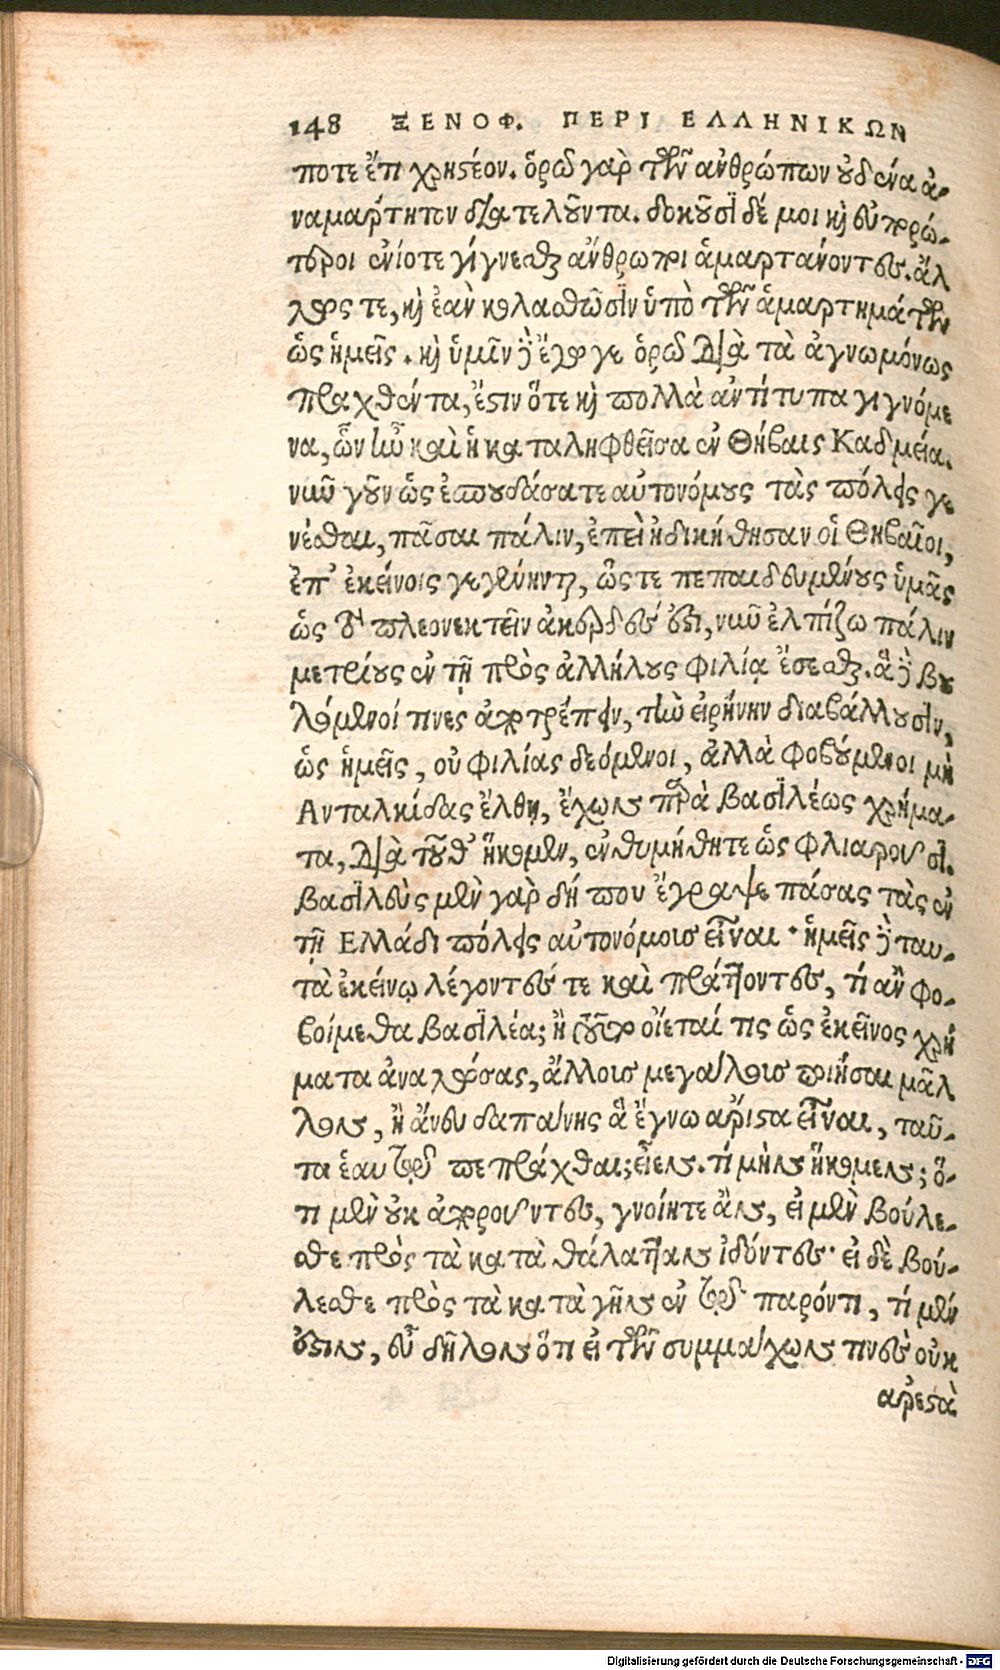 148 ΞΕΝΟΦ. ΠΕΡΙ ΕΛΛΗΝΙΚΩΝ
ποτε ἔτι χρηστέον. ὁρῶ γὰρ τῶν ἀνθρώπων οὐδένα ἀ-
ναμάρτητον διατελοῦντα. δοκοῦσι δέ μοι καὶ εὐπορώ-
τεροι ἐνίοτε γίγνεσθαι ἄνθρωποι ἁμαρτάνοντες. ἄλ
λως τε, καὶ ἐὰν κολασθῶσιν ὑπὸ τῶν ἁμαρτημάτων
ὡς ἡμεῖς. καὶ ὑμῖν δὲ ἔγωγε ὁρῶ διὰ τὰ ἀγνωμόνως
πραχθέντα, ἔστιν ὅτε καὶ πολλὰ ἀντίτυπα γιγνόμε
να, ὧν ἦν καὶ ἡ καταληφθεῖσα ἐν Θήβαις Καδμεία.
νῦν γοῦν ὡς ἐσπουδάσατε αὐτονόμους τὰς πόλεις γε
νέσθαι, πᾶσαι πάλιν, ἐπεὶ ἠδικήθησαν οἱ Θηβαῖοι,
ἐπ' ἐκείνοις γεγένηνται, ὥστε πεπαιδευμένους ὑμᾶς
ὡς τὸ πλεονεκτεῖν ἀκερδές ἐστι, νῦν ἐλπίζω πάλιν
μετρίους ἐν τῇ πρὸς ἀλλήλους φιλίᾳ ἔσεσθαι. ἃ δὲ βου
λόμενοί τινες ἀποτρέπειν, τὴν εἰρήνην διαβάλλουσιν,
ὡς ἡμεῖς, οὐ φιλίας δεόμενοι, ἀλλὰ φοβούμενοι μὴ
Ανταλκίδας ἔλθῃ, ἔχων παρὰ βασιλέως χρήμα-
τα, διὰ τοῦθ' ἥκομεν, ἐνθυμήθητε ὡς φλιαροῦσι.
βασιλεὺς μὲν γὰρ δή που ἔγραψε πάσας τὰς ἐν
τῇ Ελλάδι πόλεις αὐτονόμοις εἶναι · ἡμεῖς δὲ ταυ-
τὰ ἐκείνῳ λέγοντές τε καὶ πράττοντες, τί ἂν φο-
βοίμεθα βασιλέα; ἢ τοῦτο οἴεταί τις ὡς ἐκεῖνος χρή
ματα ἀναλώσας, ἄλλοις μεγάλοις ποιῆσαι μᾶλ
λον, ἢ ἄνευ δαπάνης ἃ ἔγνω ἄριστα εἶναι, ταῦ-
τα ἑαυτῷ πεπρᾶχθαι; εἶεν. τί μὴν ἥκομεν; ὅ-
τι μὲν οὐκ ἀποροῦντες, γνοίητε ἂν, εἰ μὲν βούλε-
σθε πρὸς τὰ κατὰ θάλατταν ἰδόντες· εἰ δὲ βού-
λεσθε πρὸς τὰ κατὰ γῆν ἐν τῷ παρόντι, τί μὲν
ἐστιν, εὖ δῆλον ὅτι εἰ τῶν συμμάχων τινὲς οὐκ
ἀρεστὰ
Digitalisierung gefördert durch die Deutsche Forschungsgemeinschaft - DFG